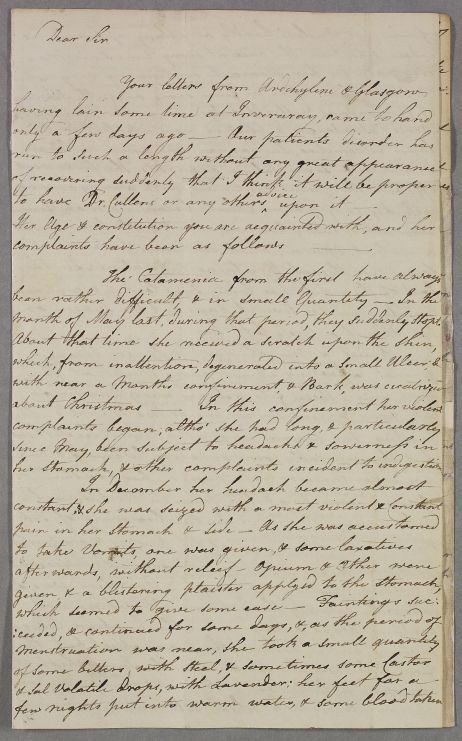 Dear Sir
Your letters from Ardchyline & Glasgow
having lain some time at Inveraray, came to hand
only a few days ago — Our patients disorder has
run to such a length without any great appearance
of recovering suddenly that I think it will be proper
to have Dr. Cullens or any others advice upon it —
Her Age & constitution you are acquainted with, and her
complaints have been as follows —
The Catamenia from the first have always
been rather difficult, & in small Quantity — In the
month of May last, during that period, they suddenly stopt.
About that time she received a scratch upon the shin,
which, from inattention, degenerated into a small Ulcer, &
with near a Months confinement, & Bark, was cicatrized
about Christmas — In this confinement her violent
complaints began, altho' she had long, & particularly
since May, been subject to headachs & sowerness in
her stomach, & other complaints incident to indigestion
In December her headach became almost
constant, & she was seized with a most violent & constant
pain in her stomach & side — As she was accustomed
to take Vomits, one was given, & some laxatives
afterwards, without relief — Opium & Æther were
given & a blistering plaister applyed to the stomach,
which seemed to give some ease — Faintings suc:
:ceeded, & continued for some days, &, as the period of
menstruation was near, she took a small quantity
of some bitters, with Steel, & sometimes some Castor
& Sal Volatile drops, with Lavender: her feet for a
few nights put into warm water, & some blood taken